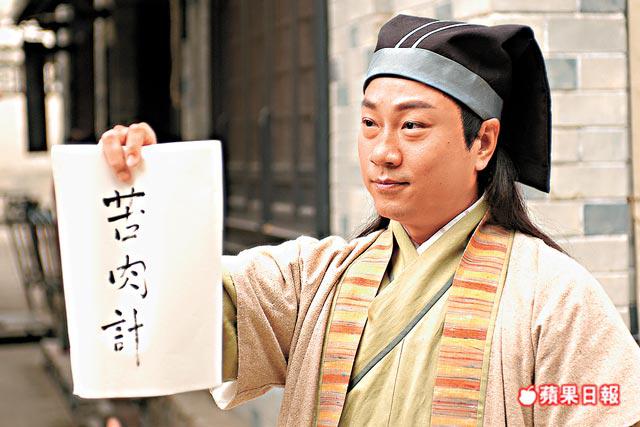 苦肉計
蘋果日報